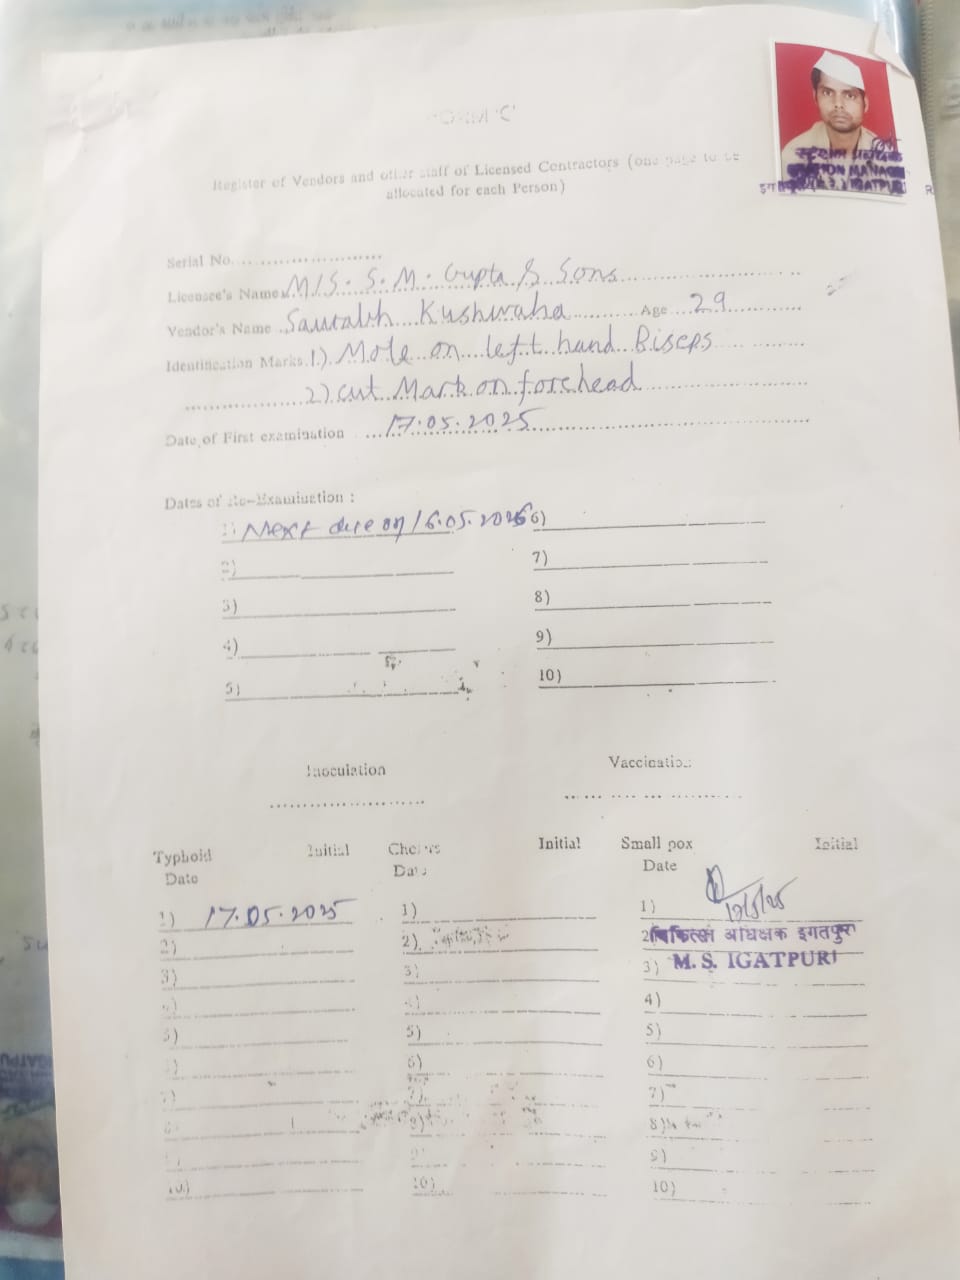 Register of Vendors and other staff of Licensed Contractors (one page to be
allocated for each Person)
स्टेशन
STATION MANAGER
IGATPURI
Serial No.
Licensee's Name M/S. S. M. Gupta & Sons
Vendor's Name Saurabh Kushwaha Age 29
Identification Marks 1) Mole on left hand Biseps
2) cut Mark on forehead
Date of First examination 17.05.2025
Dates of Re-Examination :
1) Next due on 16.05.2026 6)
2) 7)
3) 8)
4) 9)
5) 10)
Inoculation Vaccination
Typhoid Initial Initial Small pox Initial
Date Date Date
1) 17.05.2025 1) 1) 17/5/25
2) 2) 2) चिकित्सा अधिक्षक इगतपुरी
3) 3) 3) M. S. IGATPURI
4) 4) 4)
5) 5) 5)
6) 6) 6)
7) 7) 7)
8) 8) 8)
9) 9) 9)
10) 10) 10)